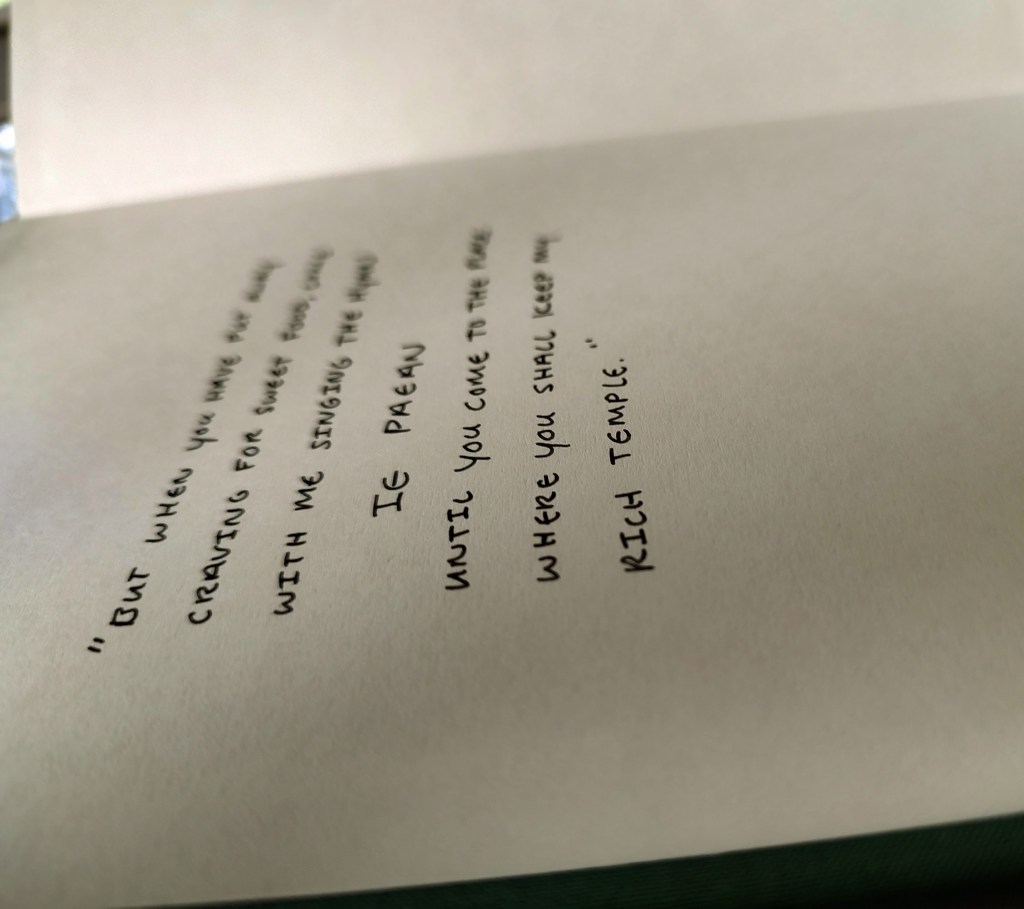 "BUT WHEN YOU HAVE PUT AWAY
CRAVING FOR SWEET FOOD, COME
WITH ME SINGING THE HYMN
IE PAEAN
UNTIL YOU COME TO THE PLACE
WHERE YOU SHALL KEEP MY
RICH TEMPLE."